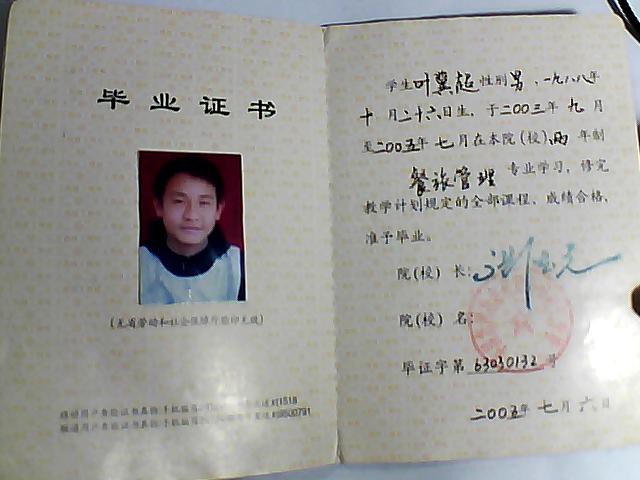 毕业证书
(无省劳动和社会保障厅验印无效)
学生叶冀起性别男,一九八八年
十月二十六日生,于二00三年九月
至二00五年七月在本院(校)两年制
餐旅管理专业学习,修完
教学计划规定的全部课程,成绩合格,
准予毕业。
院(校)长:
院(校)名:
毕证字第63030132号
二00五年七月六日